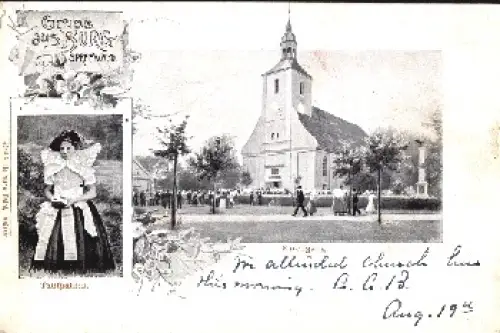 Gruss
aus BURG
SPREEWALD
Taufpathin.
We attended church here
this morning. B. G. B.
Aug. 19th